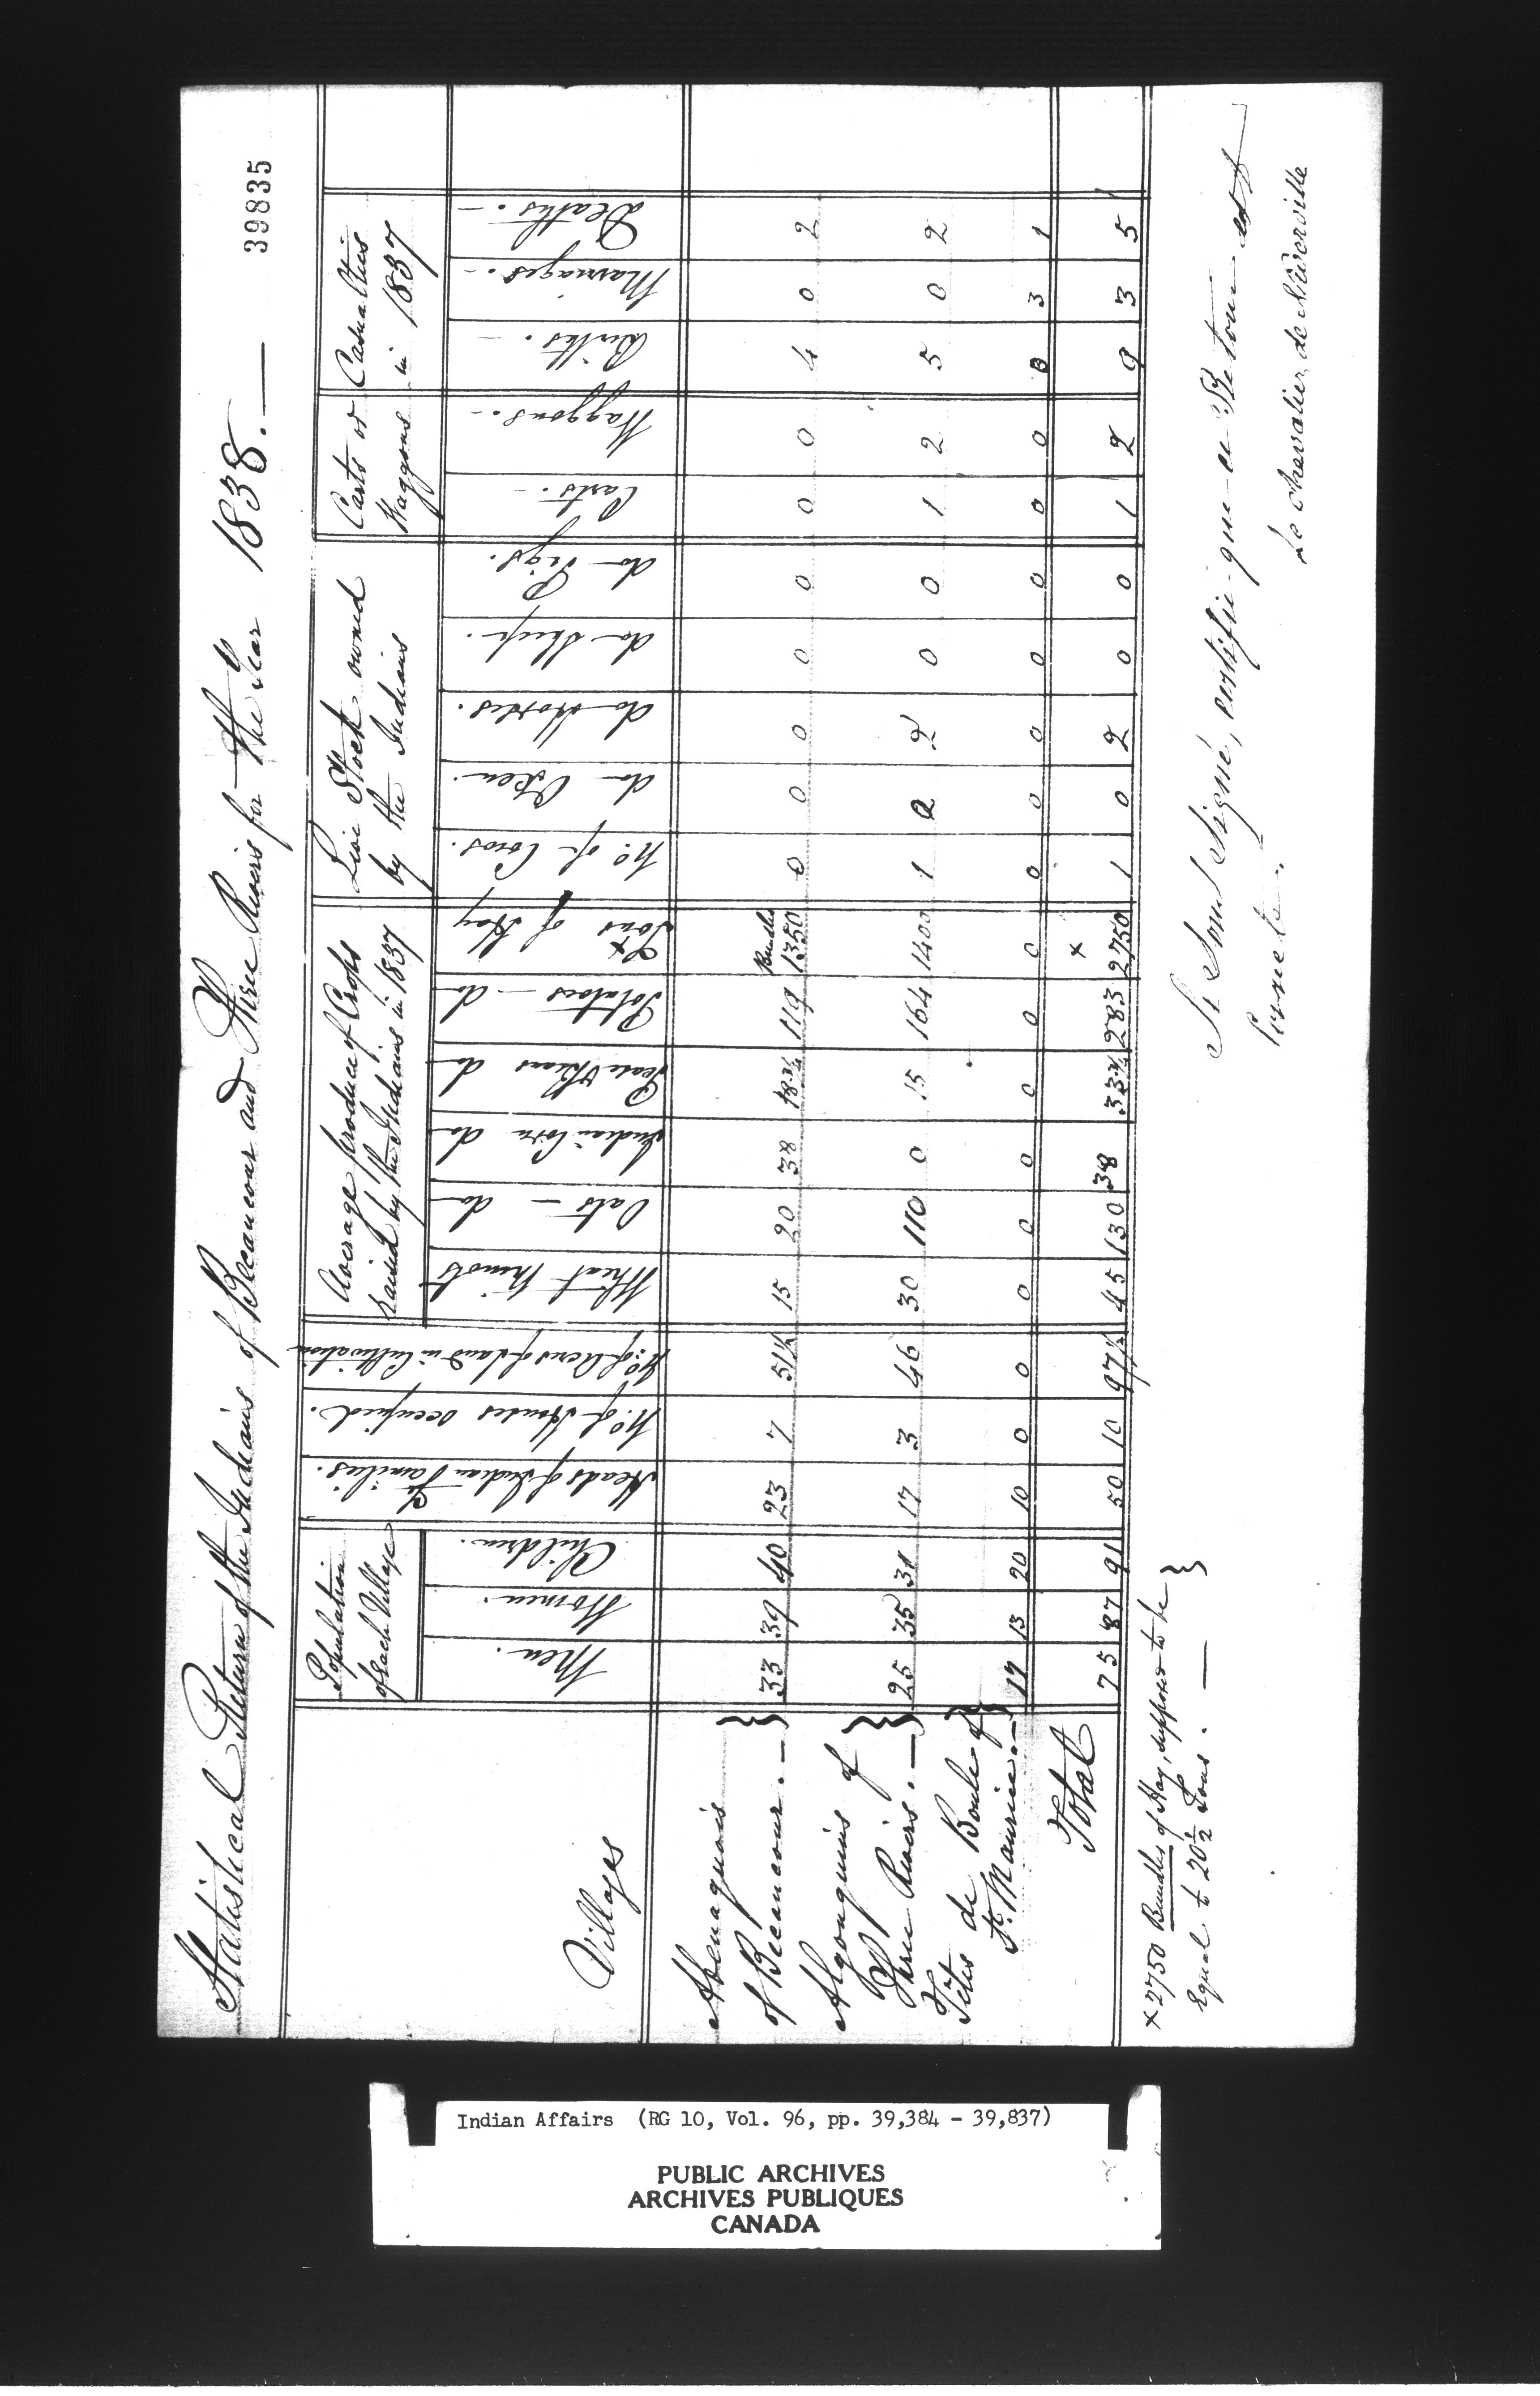 39835
Statistical Return of the Indians of Becancour and Three Rivers for the Year 1838. —
Villages
Population of each Village
Men.
Women.
Children.
Heads of Indian Families.
No. of Houses occupied.
No. of Acres of Land in Cultivation
Average produce of Crops raised by the Indians in 1837
Wheat Minots
Oats — do
Indian Corn do
Pease & Beans do
Potatoes — do
x Tons of Hay
Live Stock owned by the Indians
No. of Cows.
do Oxen.
do Horses.
do Sheep.
do Pigs.
Carts or Waggons
Carts. -
Waggons. -
Casualties in 1837
Births. -
Marriages. -
Deaths. -
Abenaquois of Becancour. — } 33 39 40 23 7 51½ 15 20 38 18¾ 119 Bundles 1350 0 0 0 0 0 0 0 4 0 2
Algonquins of Three Rivers. — } 25 35 31 17 3 46 30 110 0 15 164 1400 1 0 2 0 0 1 2 5 0 2
Tetes de Boule of St. Maurice. — } 17 13 20 10 0 0 0 0 0 0 0 0 0 0 0 0 0 0 0 0 3 1
Total 75 87 91 50 10 97½ 45 130 38 33¾ 283 x 2750 1 0 2 0 0 1 2 9 3 5
x 2750 Bundles of Hay, supposed to be }
Equal to 20½ Tons. —
Je Sous Signé, certifie que ce Retour est
Correcte.
Le Chevalier de Niverville
Indian Affairs (RG 10, Vol. 96, pp. 39,384 - 39,837)
PUBLIC ARCHIVES
ARCHIVES PUBLIQUES
CANADA